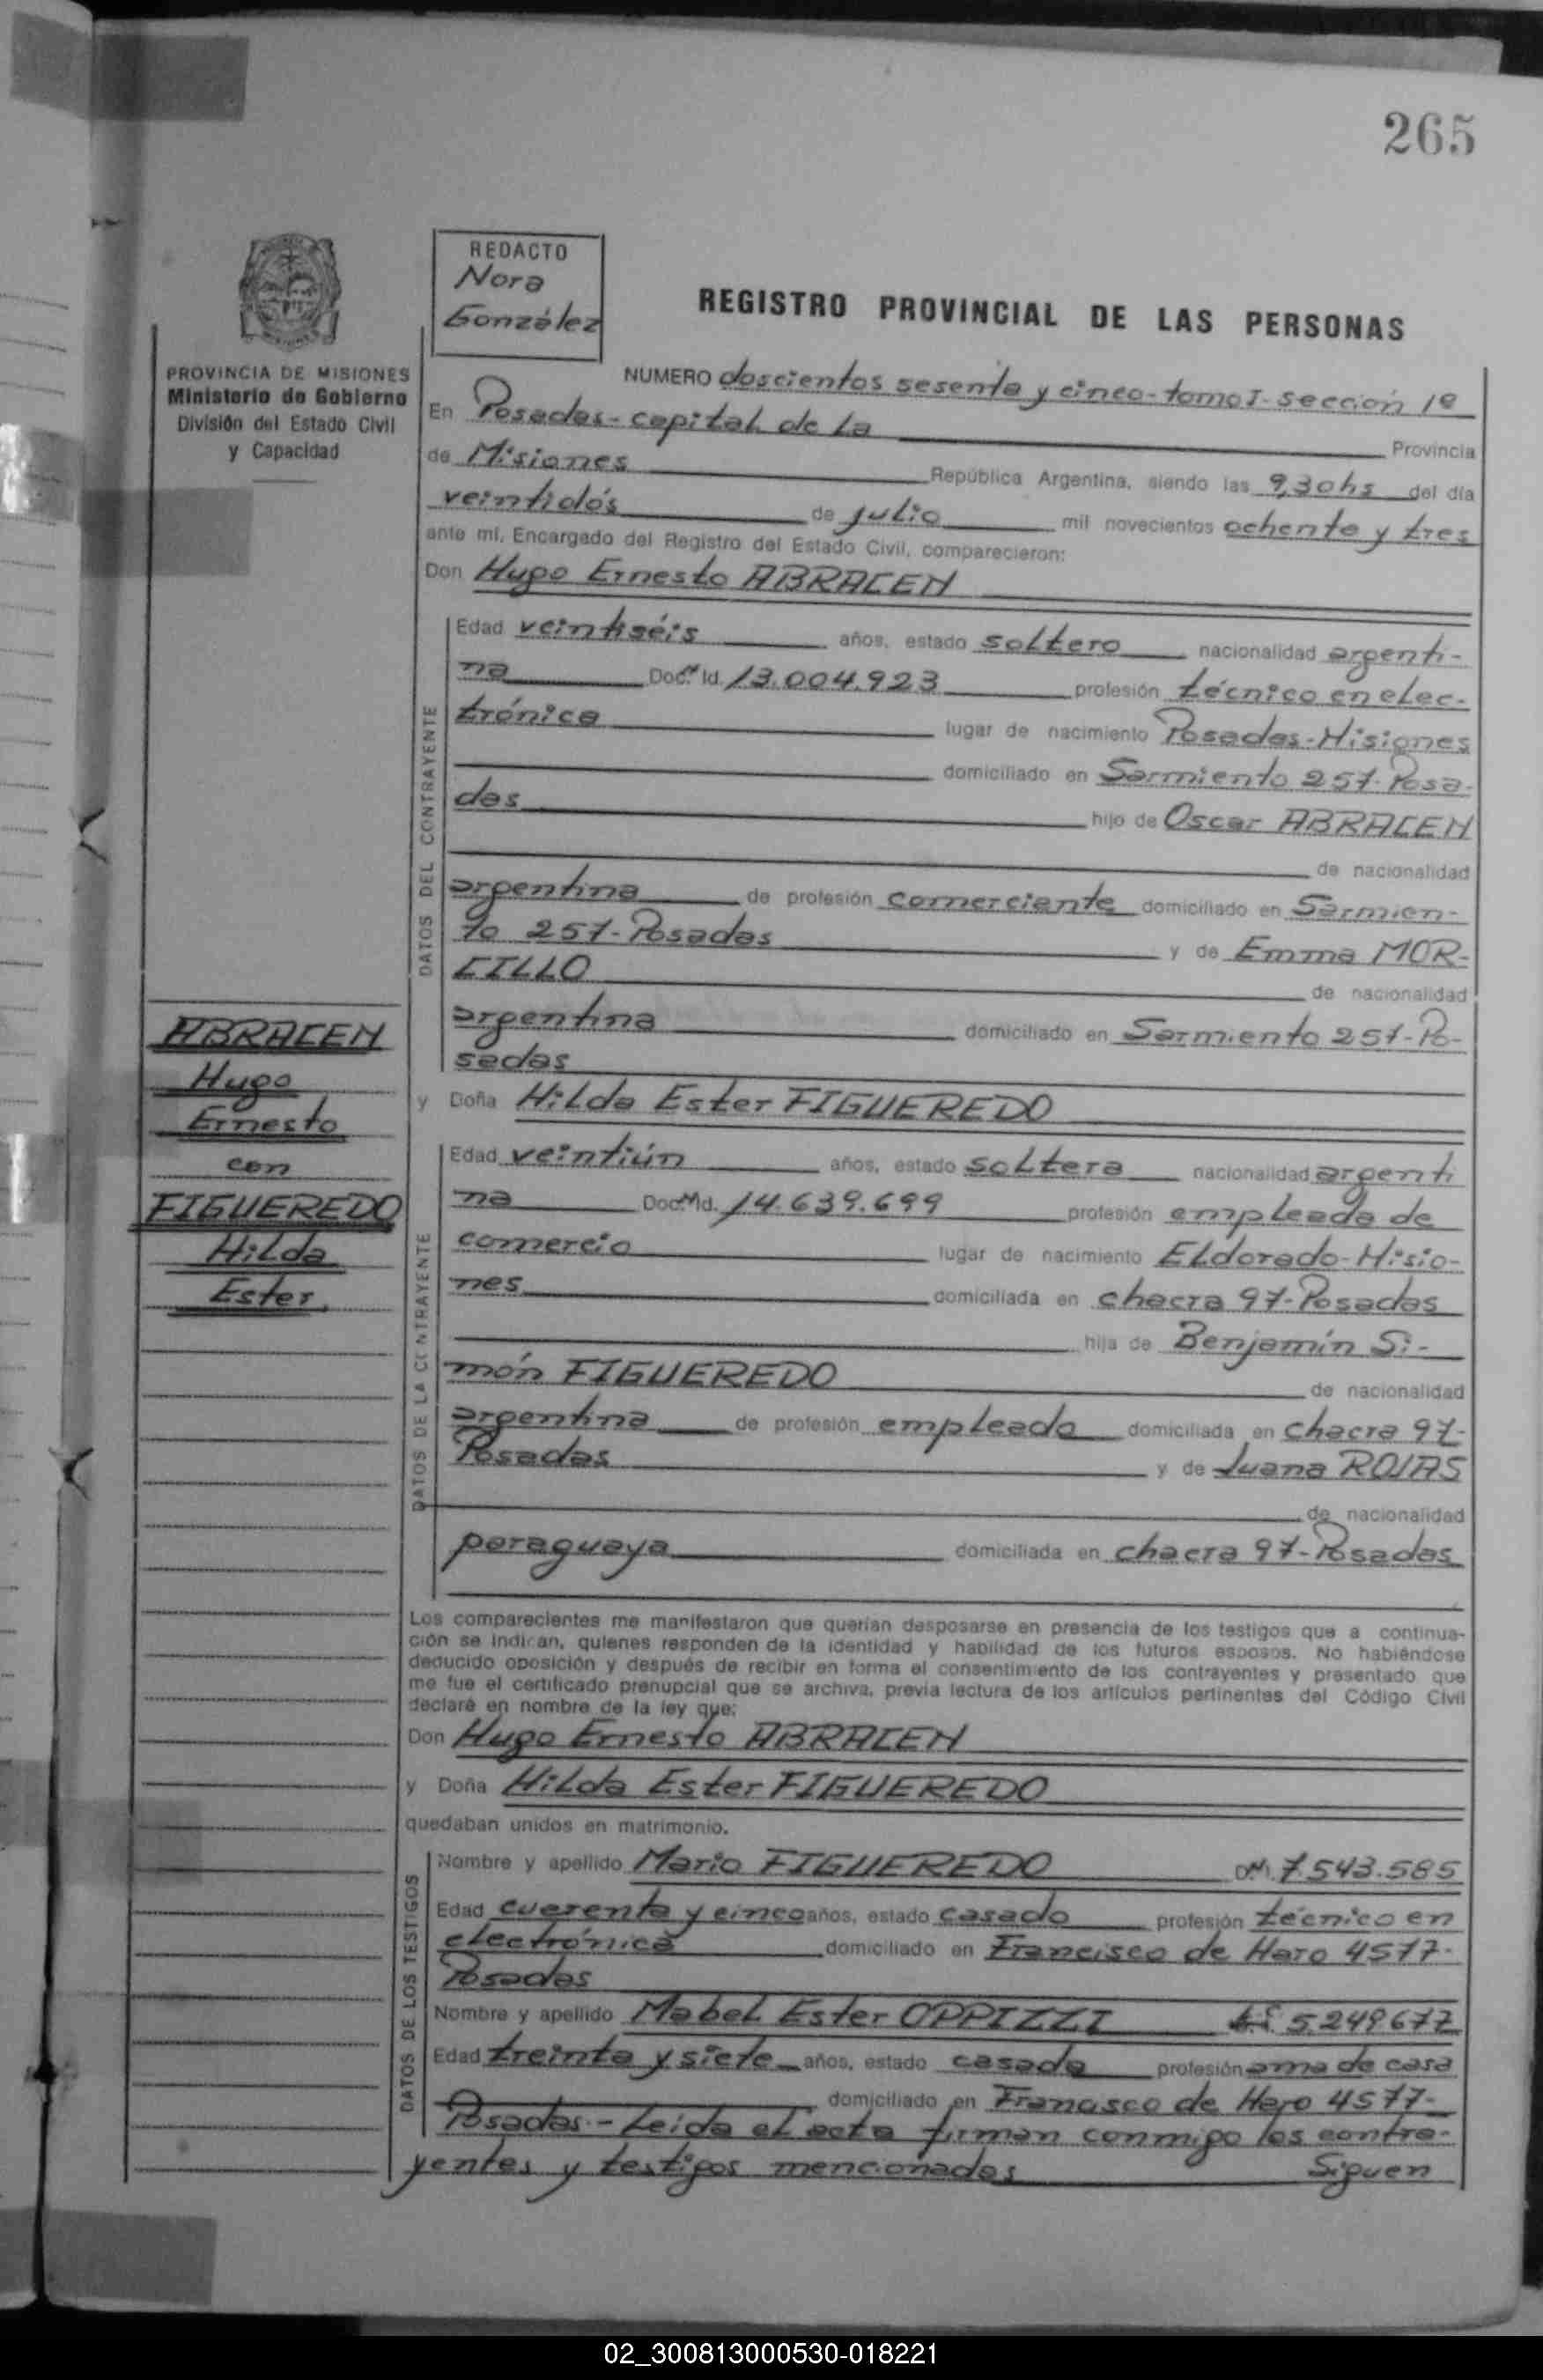 265
REDACTO
Nora
González
REGISTRO PROVINCIAL DE LAS PERSONAS
PROVINCIA DE MISIONES
Ministerio de Gobierno
División del Estado Civil
y Capacidad
NUMERO doscientos sesenta y cinco-tomo I-sección 1º
En Posadas-capital de la Provincia
de Misiones República Argentina, siendo las 9,30hs del día
veintidós de julio mil novecientos ochenta y tres
ante mí, Encargado del Registro del Estado Civil, comparecieron:
Don Hugo Ernesto ABRACEN
DATOS DEL CONTRAYENTE
Edad veintiséis años, estado soltero nacionalidad argenti-
na Doc. Id. 13.004.923 profesión técnico en elec-
trónica lugar de nacimiento Posadas-Misiones
domiciliado en Sarmiento 257-Posa-
das hijo de Oscar ABRACEN
de nacionalidad
argentina de profesión comerciante domiciliado en Sarmien-
to 257-Posadas y de Emma MOR-
CILLO de nacionalidad
argentina domiciliado en Sarmiento 257-Po-
sadas
ABRACEN
Hugo
Ernesto
con
FIGUEREDO
Hilda
Ester
y Doña Hilda Ester FIGUEREDO
DATOS DE LA CONTRAYENTE
Edad veintiún años, estado soltera nacionalidad argenti
na Doc. Id. 14.639.699 profesión empleada de
comercio lugar de nacimiento Eldorado-Misio-
nes domiciliada en chacra 97-Posadas
hija de Benjamín Si-
món FIGUEREDO de nacionalidad
argentina de profesión empleado domiciliada en chacra 97-
Posadas y de Juana ROJAS
de nacionalidad
paraguaya domiciliada en chacra 97-Posadas
Los comparecientes me manifestaron que querían desposarse en presencia de los testigos que a continua-
ción se indican, quienes responden de la identidad y habilidad de los futuros esposos. No habiéndose
deducido oposición y después de recibir en forma el consentimiento de los contrayentes y presentado que
me fue el certificado prenupcial que se archiva, previa lectura de los artículos pertinentes del Código Civil
declaré en nombre de la ley que:
Don Hugo Ernesto ABRACEN
y Doña Hilda Ester FIGUEREDO
quedaban unidos en matrimonio.
DATOS DE LOS TESTIGOS
Nombre y apellido Mario FIGUEREDO 7.543.585
Edad cuarenta y cinco años, estado casado profesión técnico en
electrónica domiciliado en Francisco de Haro 4577-
Posadas
Nombre y apellido Mabel Ester OPPIZZI 5.249677
Edad treinta y siete años, estado casada profesión ama de casa
domiciliado en Francisco de Haro 4577-
Posadas.- Leída el acta firman conmigo los contra-
yentes y testigos mencionados Siguen
02_300813000530-018221